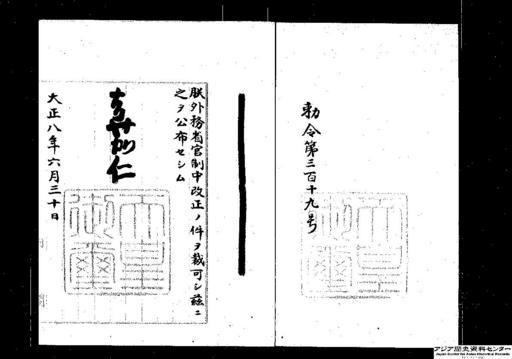 勅令第三百十九号
朕外務省官制中改正ノ件ヲ裁可シ茲ニ
之ヲ公布セシム
嘉仁
大正八年六月三十日
天皇
御璽
アジア歴史資料センター
Japan Center for Asian Historical Records